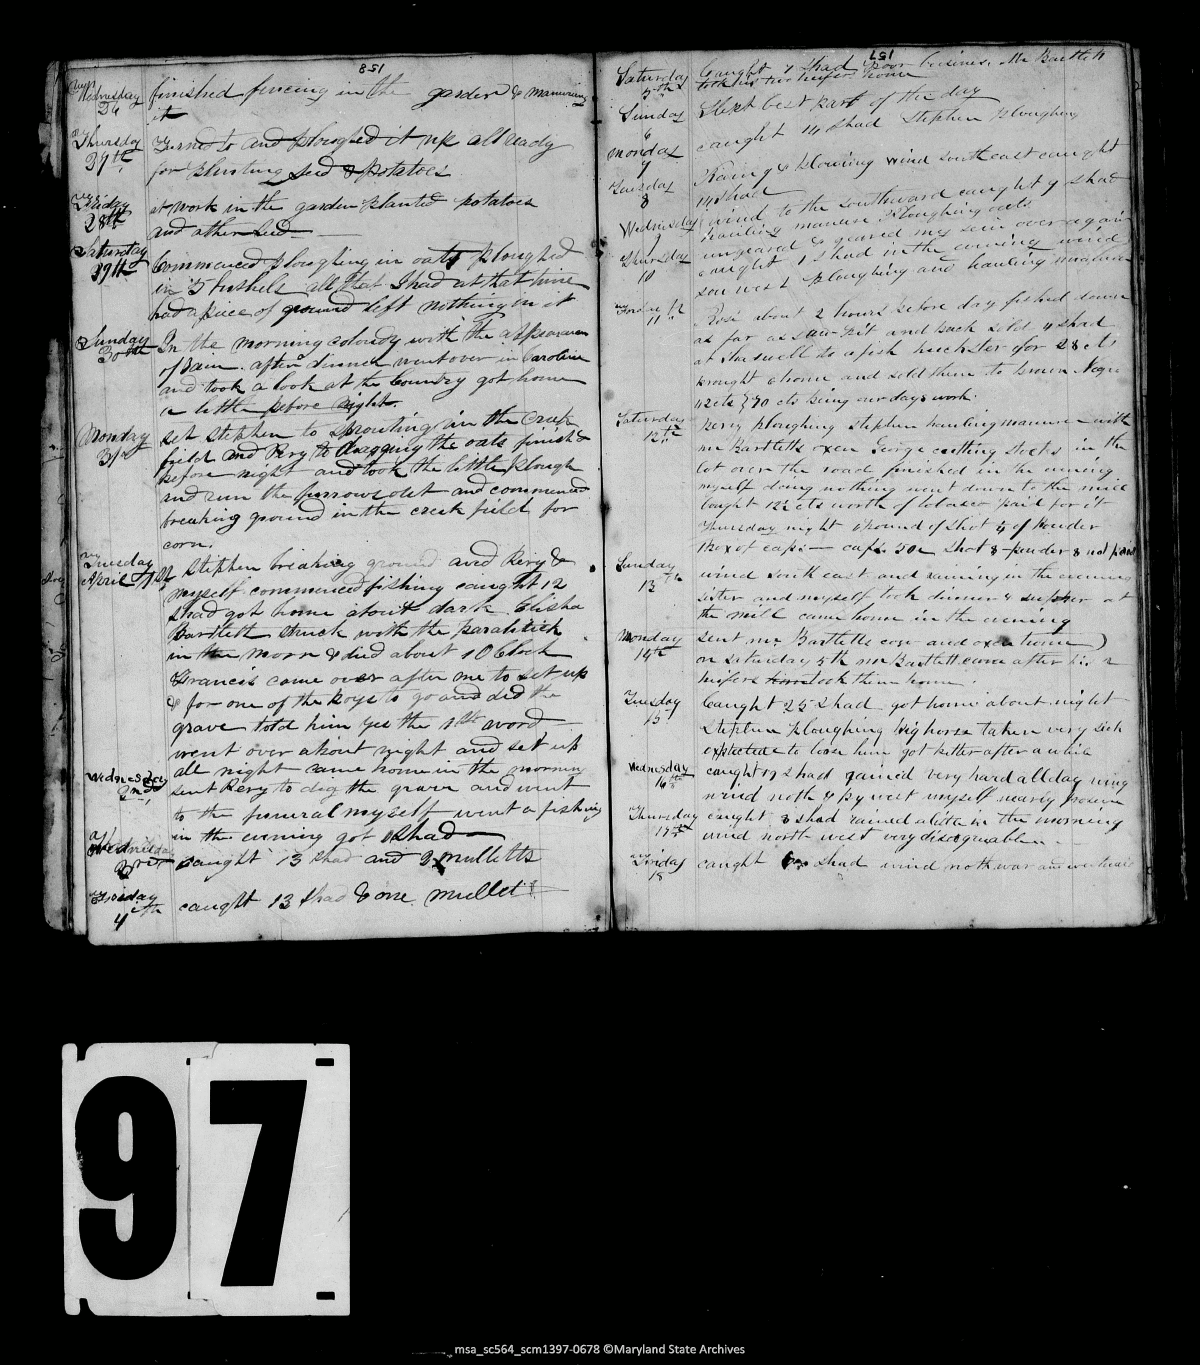 158
Wednesday finished fencing in the garden & manuring
26 it
Thursday Turned to and ploughed it up all ready
27th for planting seed & potatoes
Friday at work in the garden planted potatoes
28th and other seed
Saturday Commenced ploughing in oats ploughed
29th in 5 bushels all that I had at that time
had a piece of ground left nothing in it
Sunday In the morning cloudy with the appearance
30th of Rain. after dinner went over in Caroline
and took a look at the Country got home
a little before night.
Monday set Stephen to sprouting in the creek
31 field and Pery to dragging the oats finish'd
before night and took the little plough
and run the furrows out and commenced
breaking ground in the creek field for
corn.
Tuesday Stephen breaking ground and Pery &
April 1st myself commenced fishing caught 12
shad got home about dark Elisha
Bartlett struck with the
in the morn & died about 10 Clock
Francis came over after me to set up
& for one of the boys to go and did the
grave told him yes the 1st word
went over about night and set up
all night came home in the morning
Wednesday sent Pery to dig the grave and went
2nd to the funeral myself went a fishing
in the evening got 1 shad
caught 13 shad and 2 mulletts
3rd
Friday caught 13 shad & one mullet
4th
157
Saturday Caught 7 shad poor buisines. Mr Bartlett
5th took his two heifers home
Sunday Slept best part of the day
6
Monday caught 14 shad Stephen ploughing
7
Tuesday Raing & blowing wind south east caught
8 14 shad
Wednesday wind to the southward caught 9 shad
9 hauling manure ploughing oats
Thursday ungeared & geared my sein over again
10 caught 1 shad in the evening wind
sou west ploughing and hauling manure
Friday Rose about 2 hours before day fished down
11 as far as saw-pit and back sold 4 shad
at to a fish huckster for 28 cts
brought 6 home and sold them to Negro
42 cts } 70 cts being our days work.
Saturday Pery ploughing Stephen hauling manure with
12th mr Bartletts oxen George cutting stocks in the
lot over the road finished in the evening
myself doing nothing went down to the mill
bought 12½ cts worth of tobacco paid for it
Thursday night pound of shot of powder
1 box of caps — caps shot powder not paid
Sunday wind south east and raining in the evening
13th sister and myself took dinner & supper at
the mill came home in the evening
Monday sent mr Bartletts cow and oxen home
14th on saturday 5th mr Bartlett came after his 2
heifers took them home.
Tuesday Caught 25 shad got home about night
15 Stephen ploughing horse taken very sick
expected to loose him got better after a while
Wednesday caught 17 shad rained very hard all day
16th wind noth & by west myself nearly frozen
Thursday caught 8 shad rained a little in the morning
17th wind north west very disagreable.
Friday caught shad wind
18
97
msa_sc564_scm1397-0678 ©Maryland State Archives